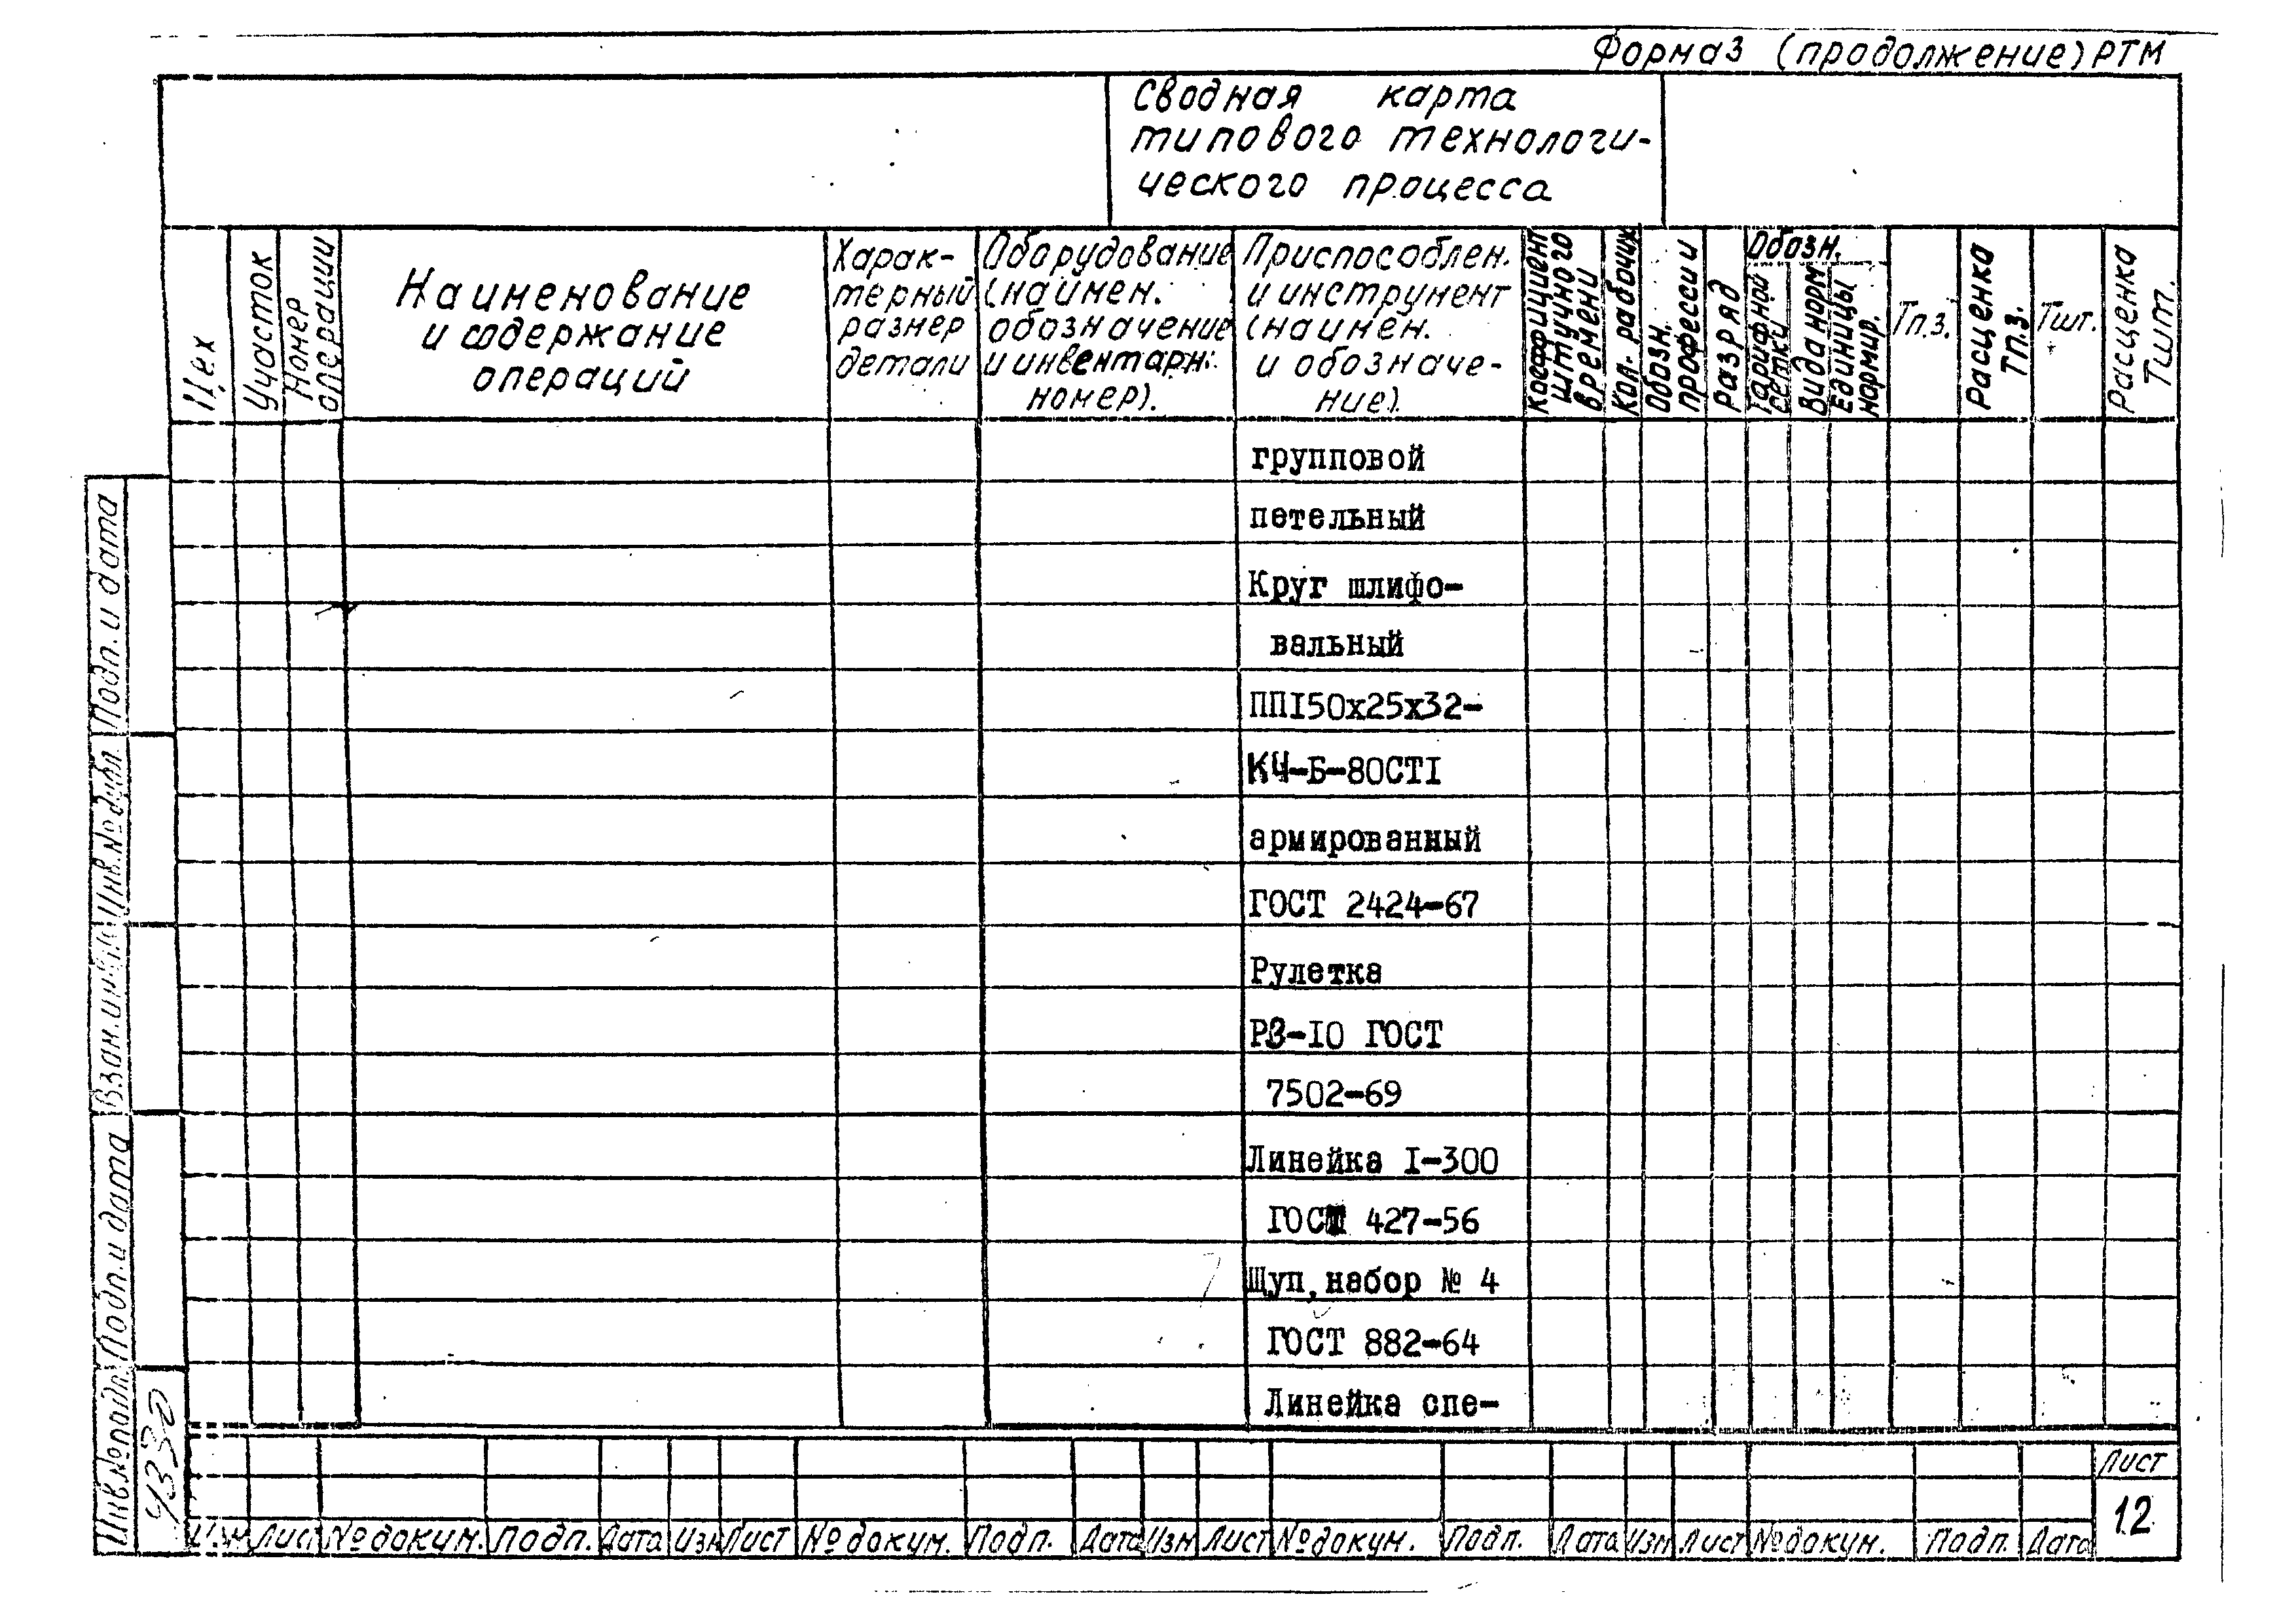 Форма3 (продолжение) РТМ
Сводная карта
типового технологи-
ческого процесса
Цех
Участок
Номер
операции
Наименование
и содержание
операций
Харак-
терный
размер
детали
Оборудование
(наимен.
обозначение
и инвентарн.
номер).
Приспособлен.
и инструмент
(наимен.
и обозначе-
ние).
Коэффициент
штучного
времени
Кол. рабочих
Обозн.
профессии
Разряд
Обозн.
Тарифной
сетки
Вида норм
Единицы
нормир.
Тп.з.
Расценка
Тп.з.
Тшт.
Расценка
Тшт.
групповой
петельный
Круг шлифо-
вальный
ПП150х25х32-
КЧ-Б-80СТ1
армированный
ГОСТ 2424-67
Рулетка
РЗ-10 ГОСТ
7502-69
Линейка I-300
ГОСТ 427-56
Щуп, набор № 4
ГОСТ 882-64
Линейка спе-
Подп. и дата
Инв.№ дубл
Взам.инв.№
Подп. и дата
Инв.№ подл.
Лист
12
Изм Лист № докум. подп. Дата Изм Лист № докум. Подп. Дата Изм Лист № докум. Подп. Дата Изм Лист № докум. Подп. Дата